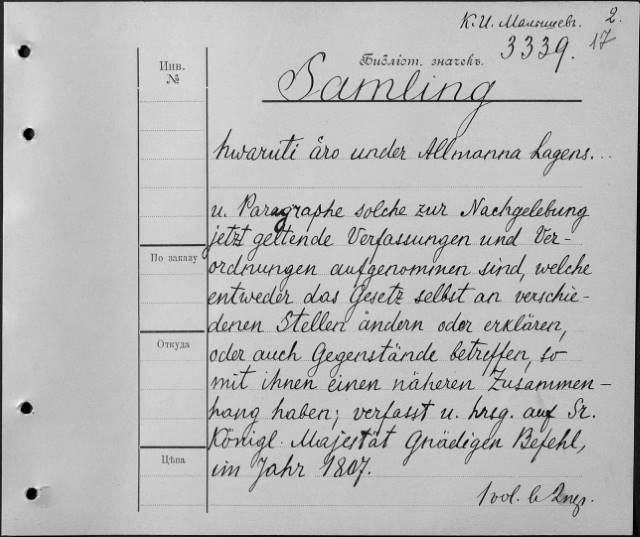 К. И. Малышевъ. 2.
17
Библіот. значекъ. 3339.
Инв.
№
Samling
hwaruti äro under Allmanna Lagens...
u. Paragraphe solche zur Nachgelebung
jetzt geltende Verfassungen und Ver-
ordnungen aufgenommen sind, welche
По заказу
entweder das Gesetz selbst an verschie-
denen Stellen ändern oder erklären,
Откуда
oder auch Gegenstände betreffen, so
mit ihnen einen näheren Zusammen-
hang haben; verfasst u. hrsg. auf Sr.
Königl. Majestät Gnädigen Befehl,
Цѣна
im Jahr 1807.
1 vol. в